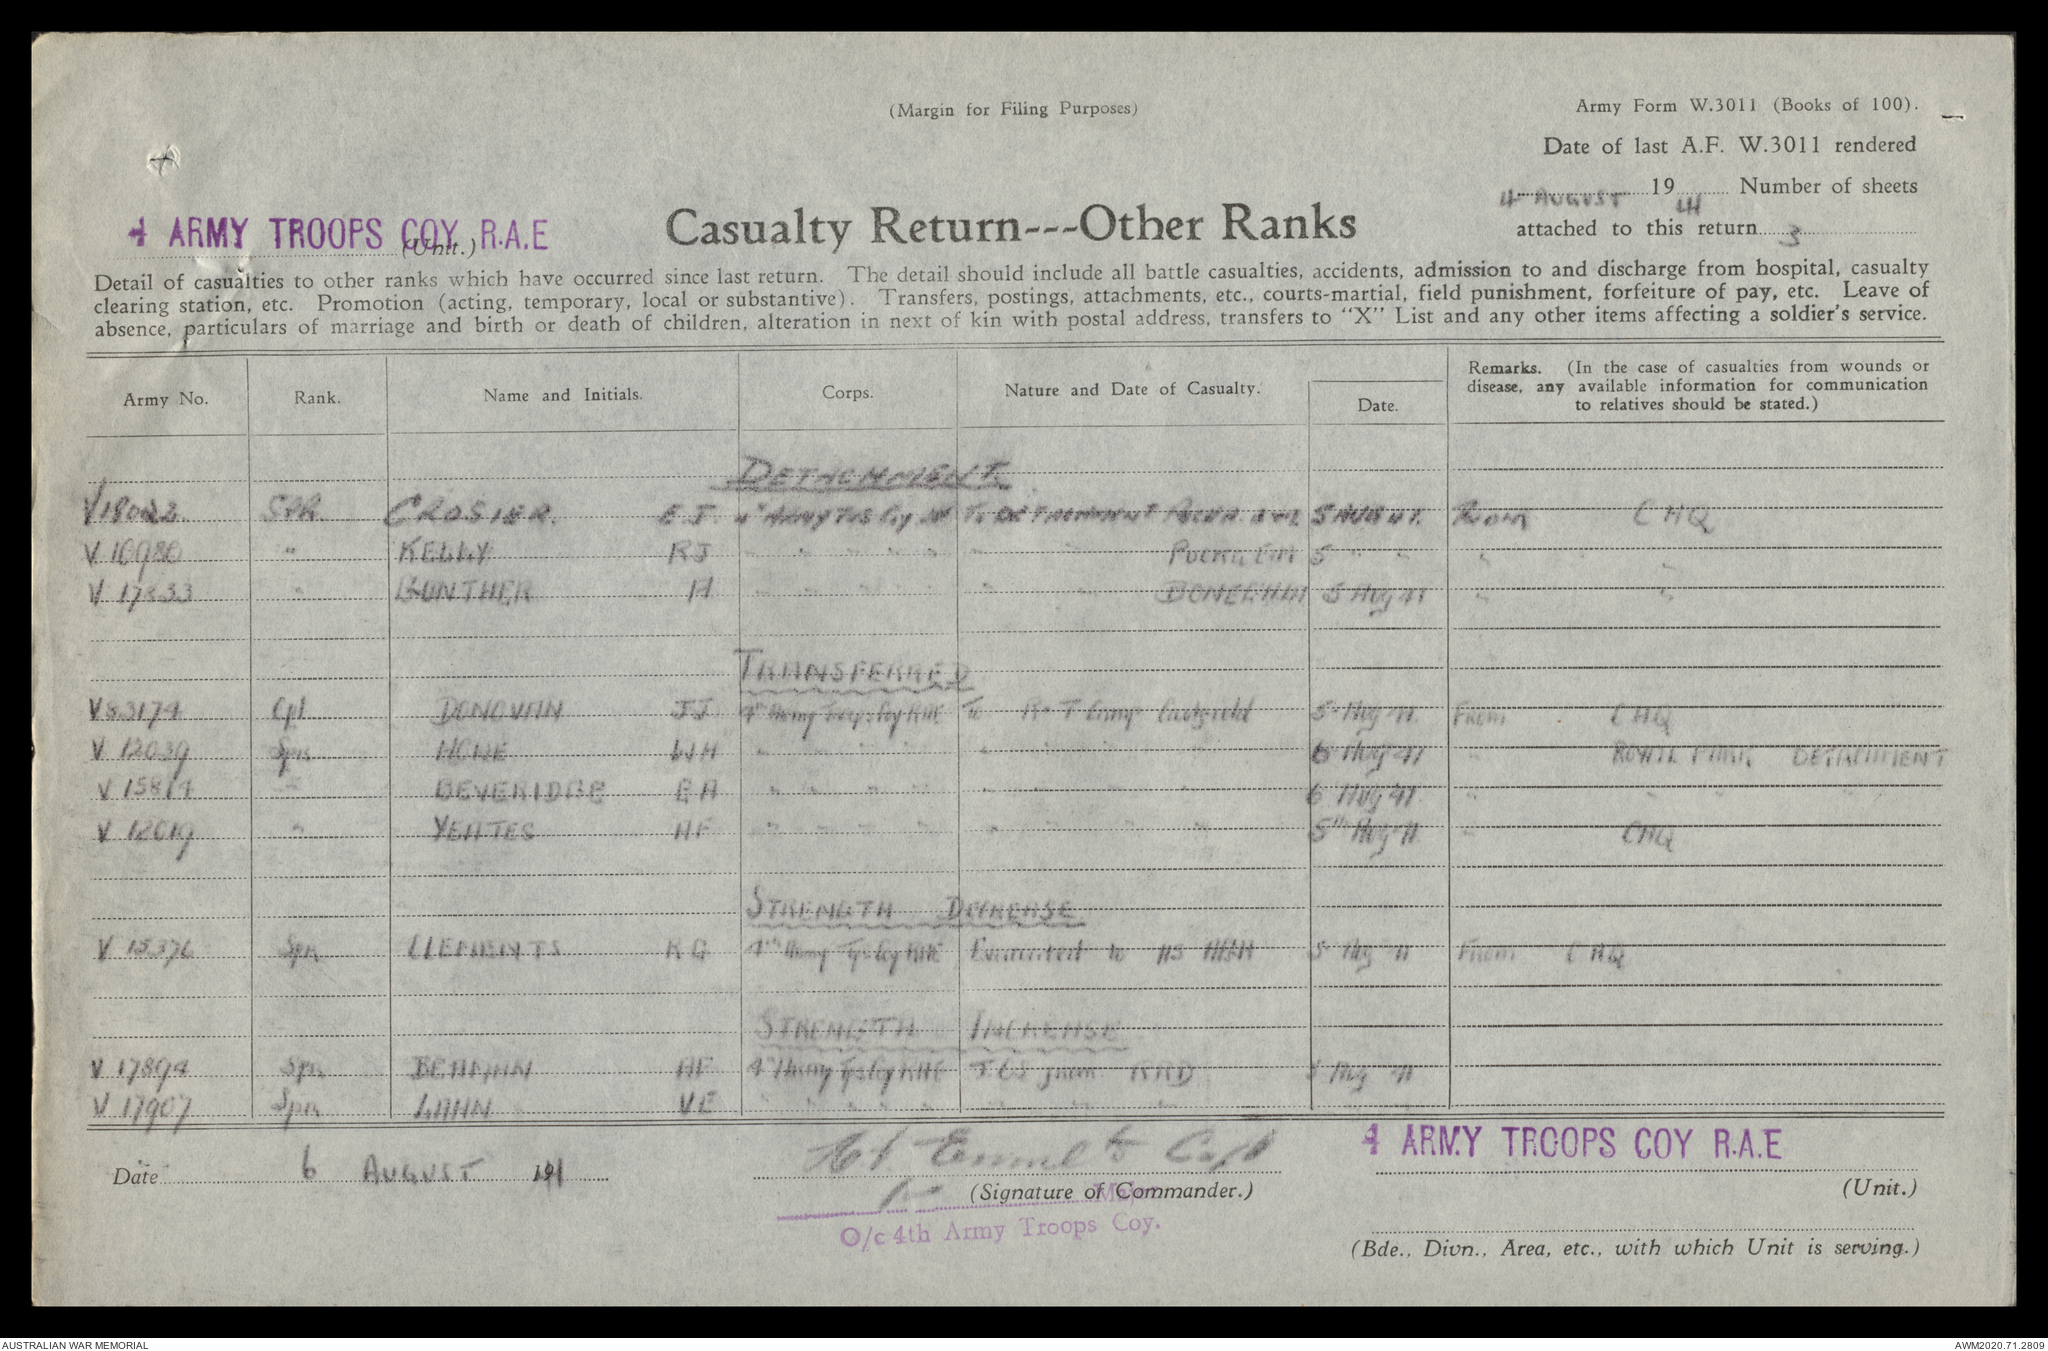 (Margin for Filing Purposes)
Army Form W.3011 (Books of 100).
Date of last A.F. W.3011 rendered
4 AUGUST 19 41 Number of sheets
attached to this return 3
4 ARMY TROOPS COY R.A.E
(Unit.)
Casualty Return---Other Ranks
Detail of casualties to other ranks which have occurred since last return. The detail should include all battle casualties, accidents, admission to and discharge from hospital, casualty
clearing station, etc. Promotion (acting, temporary, local or substantive). Transfers, postings, attachments, etc., courts-martial, field punishment, forfeiture of pay, etc. Leave of
absence, particulars of marriage and birth or death of children, alteration in next of kin with postal address, transfers to "X" List and any other items affecting a soldier's service.
Army No. Rank. Name and Initials. Corps. Nature and Date of Casualty. Date. Remarks. (In the case of casualties from wounds or
disease, any available information for communication
to relatives should be stated.)
DETACHMENT
SPR. CROSIER. E J To DETACHMENT 5 AUG 41. From CHQ
" KELLY RJ " " " " " " " 5 " " "
V 17833 " GUNTHER H " " " " " " BONEGILLA 5 Aug 41 " "
TRANSFERRED
V83174 Cpl DONOVAN JJ 4th Army Trps Coy RAE To R & T Camp Caulfield 5 Aug 41. From CHQ
V 12039 Spr HONE WH " " " " " " " " 6 Aug 41 " ROYAL PARK DETACHMENT
V 15814 " BEVERIDGE EA " " " " " " " " 6 Aug 41. " " " "
V 12019 " YEATES AF " " " " " " " " 5th Aug 41. " CHQ
STRENGTH DECREASE
V 15376 Spr CLEMENTS KG 4th Army Tps Coy RAE Evacuated to 5 Aug 41 From CHQ
STRENGTH INCREASE
V 17894 Spr AF 4th Army Tps Coy RAE T.O.S from RRD 5 Aug 41
V 17907 Spr LAHN VE " " " " " " "
Date 6 AUGUST 1941
Capt
(Signature of Commander.)
O/c 4th Army Troops Coy.
4 ARMY TROOPS COY R.A.E
(Unit.)
(Bde., Divn., Area, etc., with which Unit is serving.)
AUSTRALIAN WAR MEMORIAL
AWM2020.71.2809